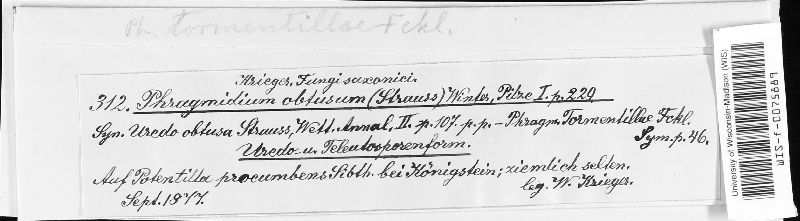 Ph. tormentillae Fckl.
Krieger, Fungi saxonici.
312. Phragmidium obtusum (Strauss) Winter, Pilze I. p. 229
Syn. Uredo obtusa Strauss, Wett. Annal. II. p. 107. p. p. – Phragm. Tormentillae Fckl.
Sym. p. 46.
Uredo- u. Teleutosporenform.
Auf Potentilla procumbens Sibth. bei Königstein; ziemlich selten.
Sept. 1877. leg. W. Krieger.
University of Wisconsin-Madison (WIS)
WIS-f-0075889